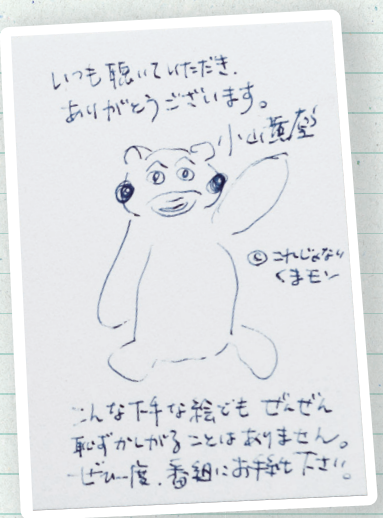 いつも聴いていただき、
ありがとうございます。
小山薫堂
© これじゃない
くまモン
こんな下手な絵でも ぜんぜん
恥ずかしがることはありません。
ぜひ一度、番組にお手紙を下さい。